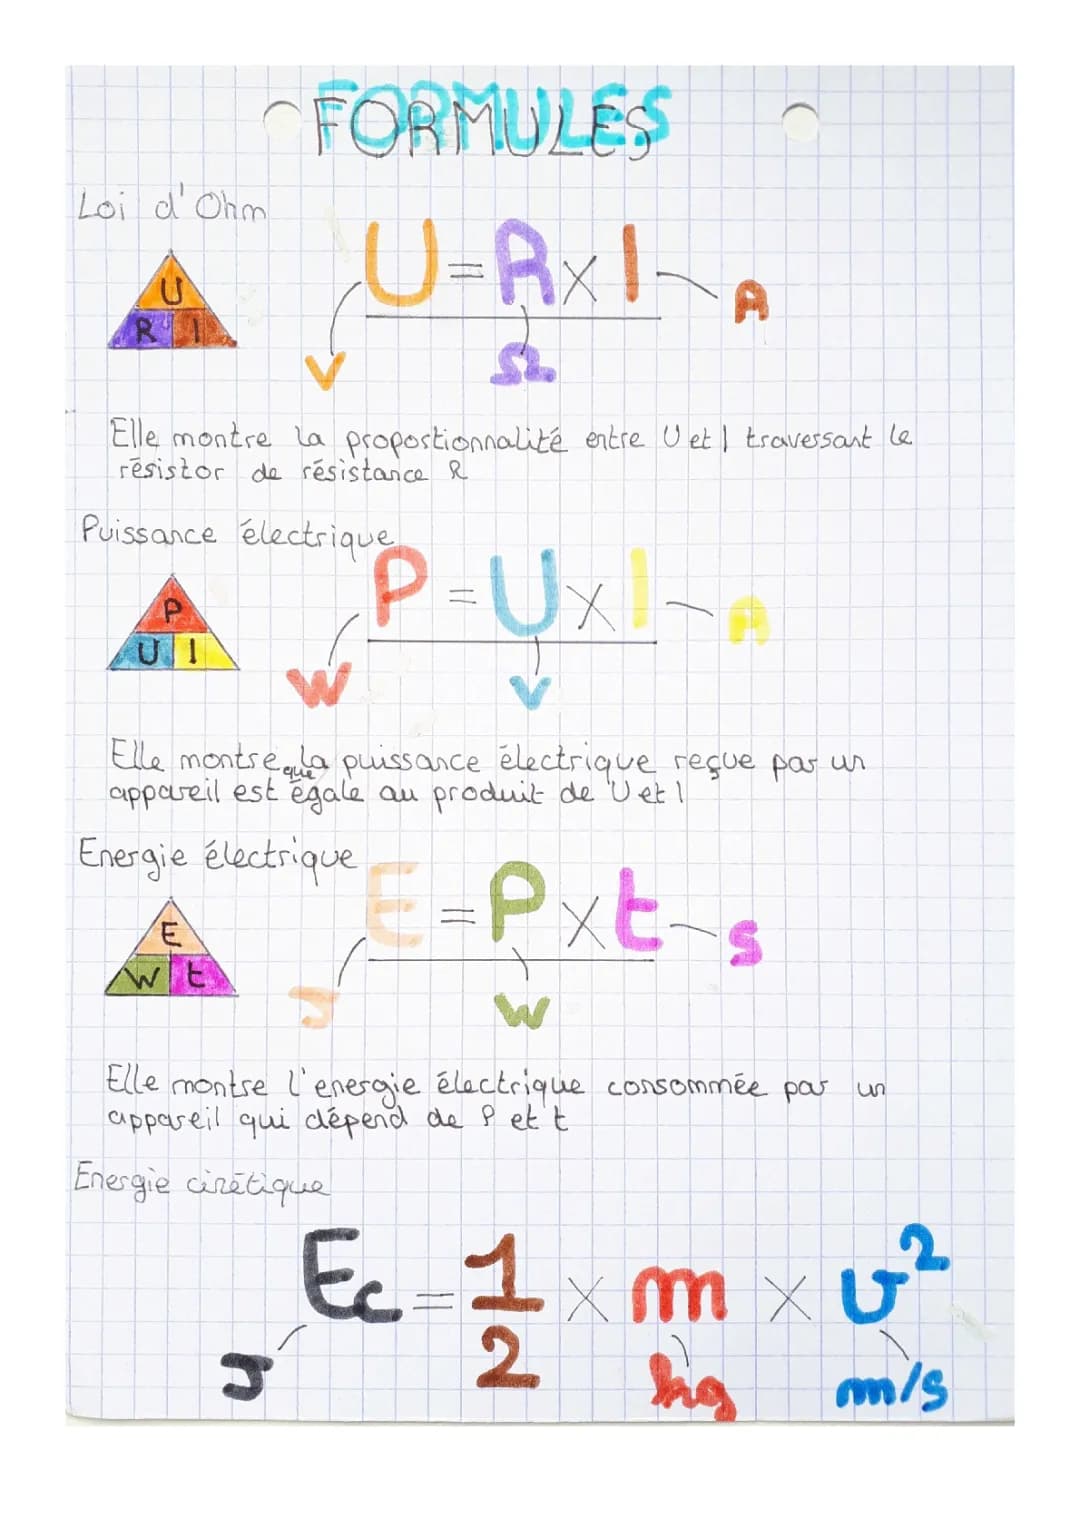 FORMULES
Loi d'Ohm
U = R x I
A
U
R I
V
Ω
Elle montre la proportionnalité entre U et I traversant le
résistor de résistance R
Puissance électrique
P = U x I
A
P
U I
W
V
Elle montre que la puissance électrique reçue par un
appareil est égale au produit de U et I
Energie électrique
E = P x t
s
E
W t
J
W
Elle montre l'energie électrique consommée par un
appareil qui dépend de P et t
Energie cinétique
Ec = 1/2 x m x v²
J
kg
m/s